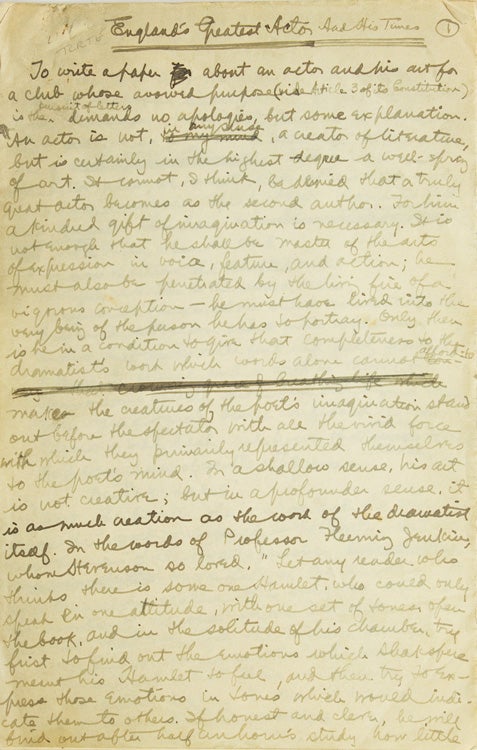 England's Greatest Actor And His Times
1
To write a paper about an actor and his art for
a club whose avowed purpose (vide Article 3 of its Constitution)
is the pursuit of letters demands no apologies, but some explanation.
An actor is not, in any sense, a creator of literature,
but is certainly in the highest degree a well-spring
of art. It cannot, I think, be denied that a truly
great actor becomes as the second author. For him
a kindred gift of imagination is necessary. It is
not enough that he shall be master of the arts
of expression in voice, feature, and action; he
must also be penetrated by the living fire of a
vigorous conception – he must have lived into the
very being of the person he has to portray. Only then
is he in a condition to give that completeness to the
dramatist's work which words alone cannot afford to
makes the creatures of the poet's imagination stand
out before the spectator with all the vivid force
with which they primarily represented themselves
to the poet's mind. In a shallow sense, his art
is not creative; but in a profounder sense, it
is as much creation as the work of the dramatist
itself. In the words of Professor Fleeming Jenkin,
whom Stevenson so loved. "Let any reader who
thinks there is some one Hamlet, who could only
speak in one attitude, with one set of tones, open
the book, and in the solitude of his chamber, try
first to find out the emotions which Shakspere
meant his Hamlet to feel, and then try to ex-
press those emotions in tones which would indi-
cate them to others. If honest and clever, he will
find out after half an hour's study how little